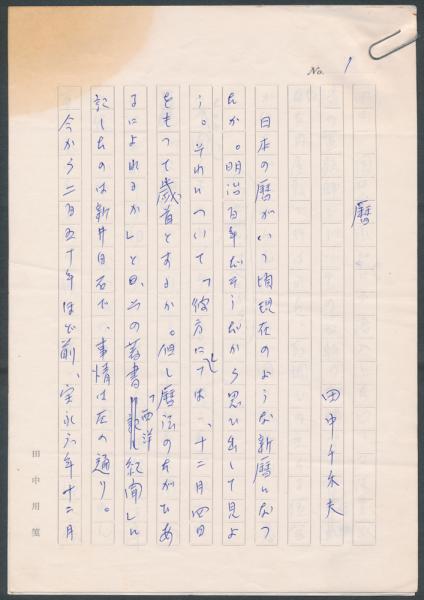 No. 1
暦
田中千禾夫
日本の暦がいつ頃現在のような新暦になつ
たか。明治百年だそうだから思ひ出して見よ
う。それについて、「彼方にては、十二月四日
をもつて歳首とするか。但し暦法のたがひあ
るによれるか」と曰、その著書「西洋紀聞」に
記したのは新井白石で、事情は左の通り。
今から二百五十年ほど前、宝永六年十二月
田中用箋